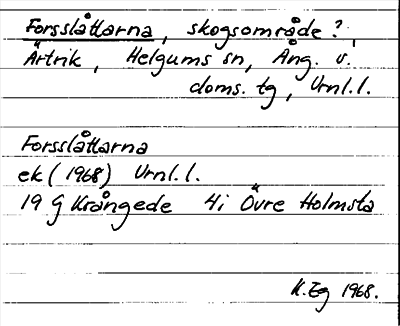 Forsslåttarna, skogsområde?,
Ärtrik, Helgums sn, Ång. v.
doms. tg, Vrnl.l.
Forsslåttarna
ek (1968) Vrnl.l.
19 G Krångede 4i Övre Holmsta
K.Eg 1968.